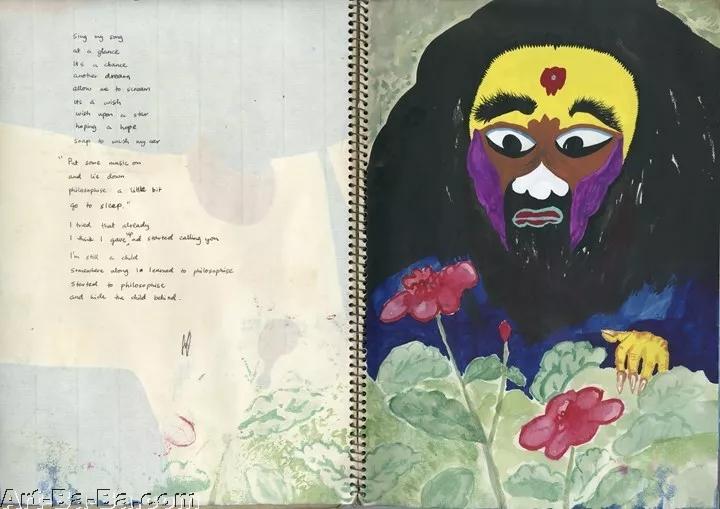 Sing my song
at a glance
its a chance
another dream
allow me to scream
its a wish
wish upon a star
hoping a hope
soap to wash my ear
"Put some music on
and lie down
philosophise a little bit
go to sleep."
I tried that already
I think I gave up and started calling you
I'm still a child
somewhere along I learned to philosophise
started to philosophise
and hide the child behind.
Art-Ba-Ba.com